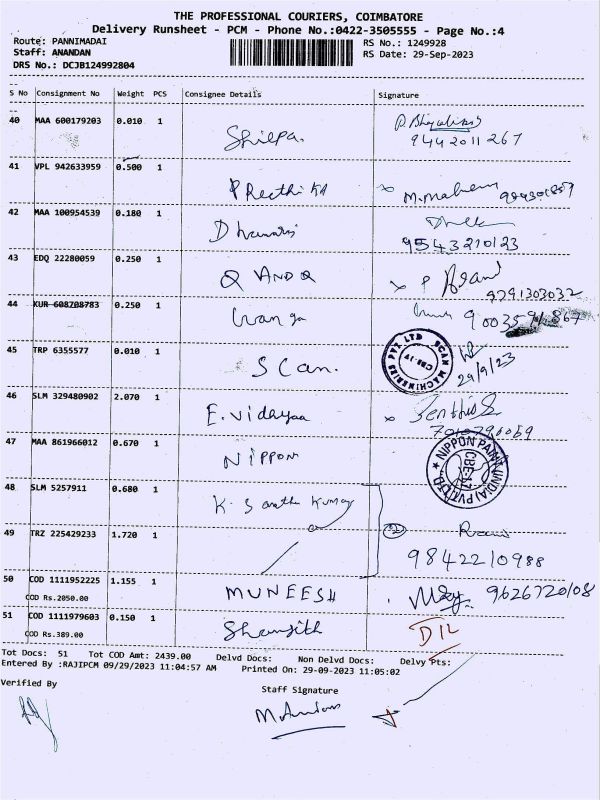 THE PROFESSIONAL COURIERS, COIMBATORE
Delivery Runsheet - PCM - Phone No.:0422-3505555 - Page No.:4
Route: PANNIMADAI
RS No.: 1249928
Staff: ANANDAN
RS Date: 29-Sep-2023
DRS No.: DCJB124992804
S No Consignment No Weight PCS Consignee Details Signature
40 MAA 600179203 0.010 1 Shilpa.
9442011267
41 VPL 942633959 0.500 1 PReethiKA
42 MAA 100954539 0.180 1
9543210123
43 EDQ 22280059 0.250 1 Q AND Q
9791303032
44 KUR 608708783 0.250 1 Wanga
45 TRP 6355577 0.010 1 SCan.
SCAN MACHINERIES PVT LTD
29/9/23
46 SLM 329480902 2.070 1 E. Vidhyaa
47 MAA 861966012 0.670 1 NIPPON
NIPPON PAINT (INDIA) PVT LTD
48 SLM 5257911 0.680 1 K. Sarath Kumar
49 TRZ 225429233 1.720 1
9842210988
50 COD 1111952225 1.155 1 MUNEESH 9626720108
COD Rs.2050.00
51 COD 1111979603 0.150 1 Shangith D/L
COD Rs.389.00
Tot Docs: 51 Tot COD Amt: 2439.00 Delvd Docs: Non Delvd Docs: Delvy Pts:
Entered By :RAJIPCM 09/29/2023 11:04:57 AM Printed On: 29-09-2023 11:05:02
Verified By
Staff Signature